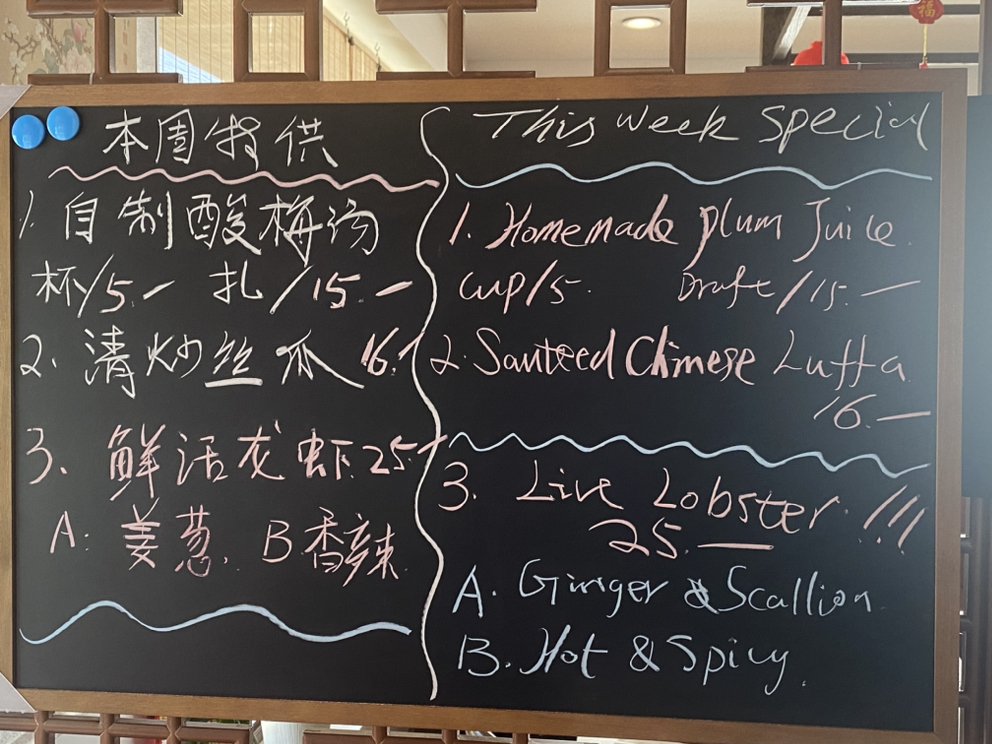 本周特供
1. 自制酸梅汤
杯/5.— 扎/15—
2. 清炒丝瓜 16.-
3. 鲜活龙虾 25.-
A. 姜葱. B 香辣.
This Week Special
1. Homemade plum Juice.
Cup/5. Draft/15.—
2. Sauteed Chinese Luffa
16.—
3. Live Lobster !!!
25.—
A. Ginger & Scallion
B. Hot & Spicy.
福